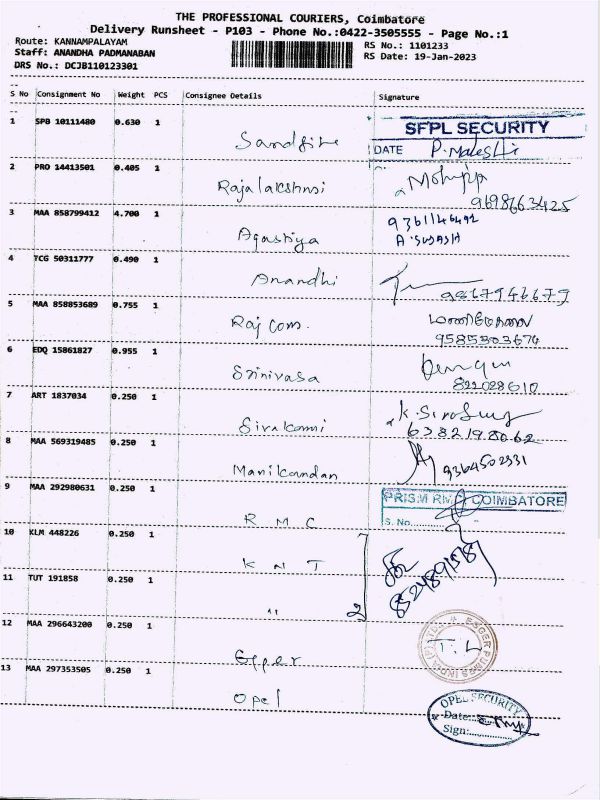 THE PROFESSIONAL COURIERS, Coimbatore
Delivery Runsheet - P103 - Phone No.:0422-3505555 - Page No.:1
Route: KANNAMPALAYAM
Staff: ANANDHA PADMANABAN
DRS No.: DCJB110123301
RS No.: 1101233
RS Date: 19-Jan-2023
S No Consignment No Weight PCS Consignee Details Signature
1 SPB 10111480 0.630 1
SFPL SECURITY
DATE P.Maheshi
2 PRO 14413501 0.405 1 Rajalakshmi
9698663425
3 MAA 858799412 4.700 1 Agastiya
9361146492
4 TCG 50311777 0.490 1 Anandhi
9867946679
5 MAA 858853689 0.755 1 Raj Com.
9585303674
6 EDQ 15861827 0.955 1 Srinivasa
822028610
7 ART 1837034 0.250 1 Sivakami
6382198062
8 MAA 569319485 0.250 1 Manikandan
9364502331
9 MAA 292980631 0.250 1 R M C
PRISM RM COIMBATORE
S. No.
10 KLM 448226 0.250 1 K N T
11 TUT 191858 0.250 1 " 2
12 MAA 296643200 0.250 1
T. L
13 MAA 297353505 0.250 1 Opel
OPEL SECURITY
Date:
Sign: